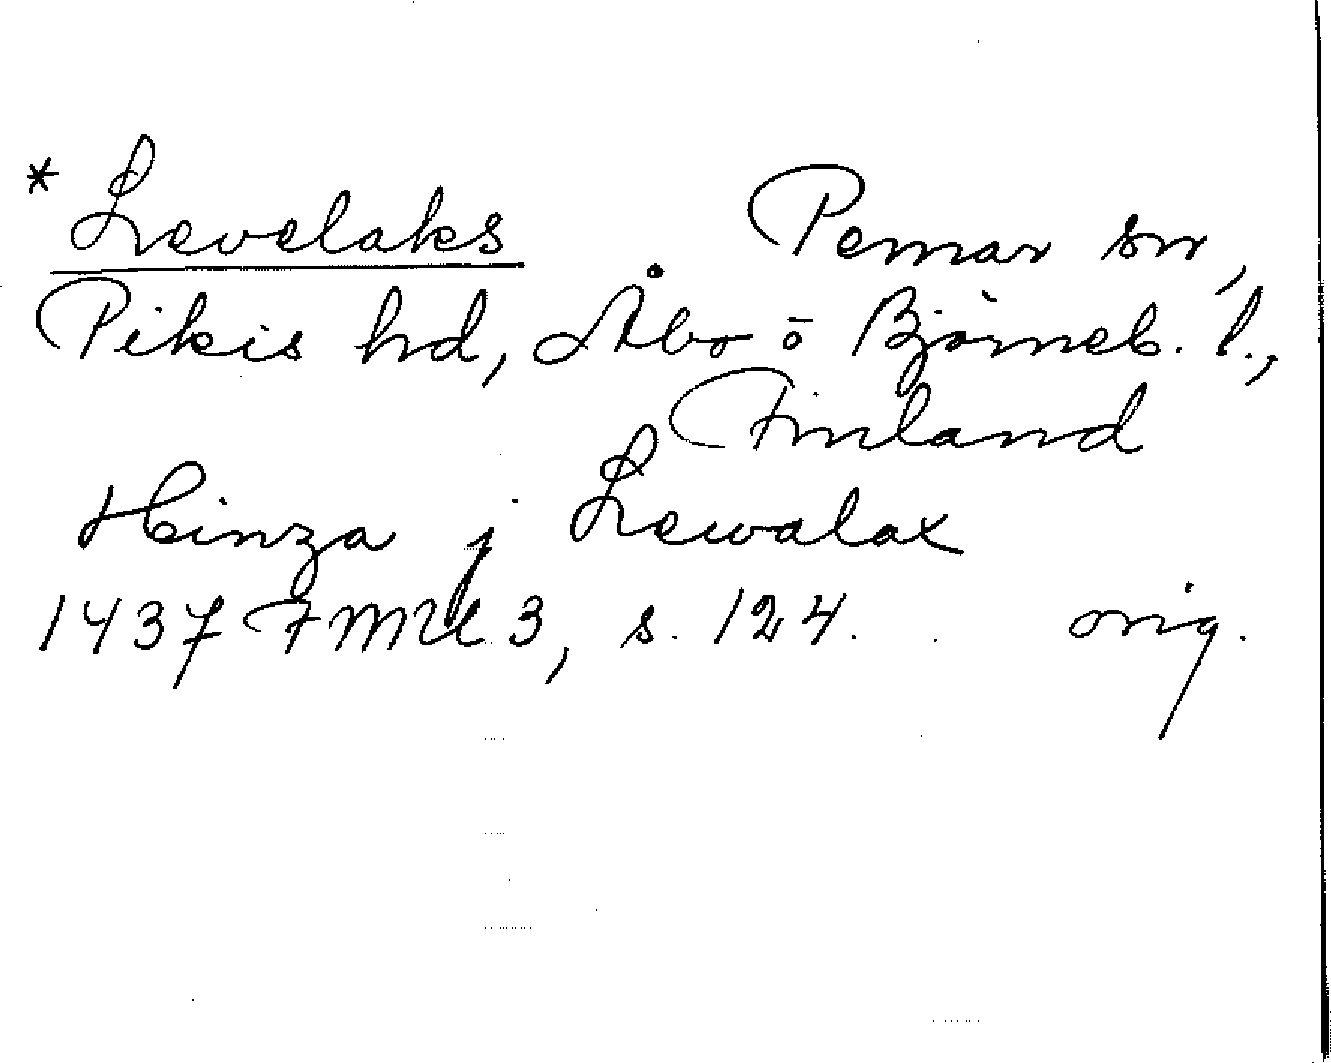 * Levelaks Pemar sn,
Pikis hd, Åbo o Björneb. l.,
Finland
Hinza j Lewalax
1437 FMU 3, s. 124. orig.